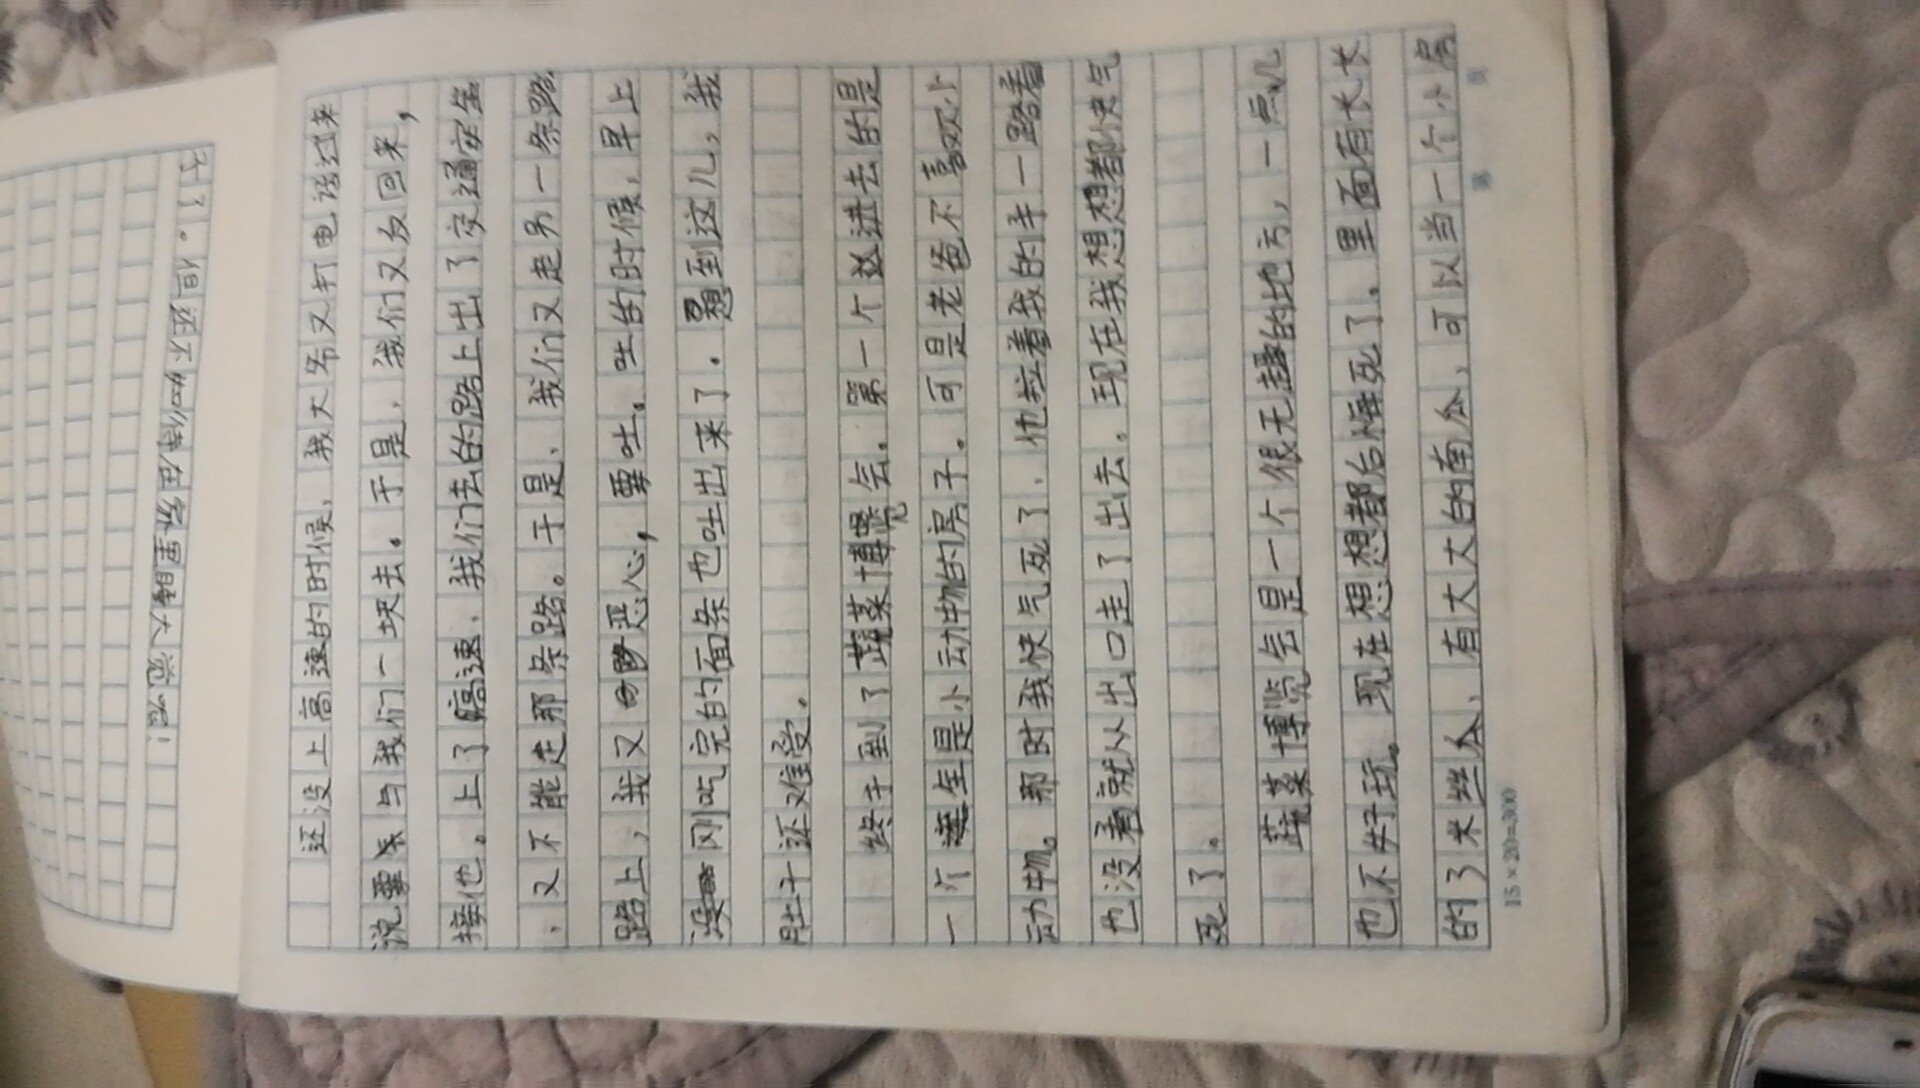 还没上高速的时候，我大爷又打电话过来
说要与我们一块去。于是，我们又反回来，
接他。上了高速，我们去的路上出了交通安全
，又不能走那条路。于是，我们又走另一条路
路上，我又恶心，要吐。吐的时候，早上
没刚吃完的面条也吐出来了。题到这儿，我
肚子还难受。
终于到了蔬菜博览会。第一个进去的是
一个连生是小动物的房子。可是老爸不喜欢小
动物。那时我快气死了，他拉着我的手一路看
也没看就从出口走了出去。现在我想想都快气
死了。
蔬菜博览会是一个很无趣的地方，一点儿
也不好玩。现在想想都后悔死了。里面有长长
的3米丝瓜，有大大的南瓜，可以当一个小房
子了。但还不如待在家里睡大觉呢！
15×20=300
第 页